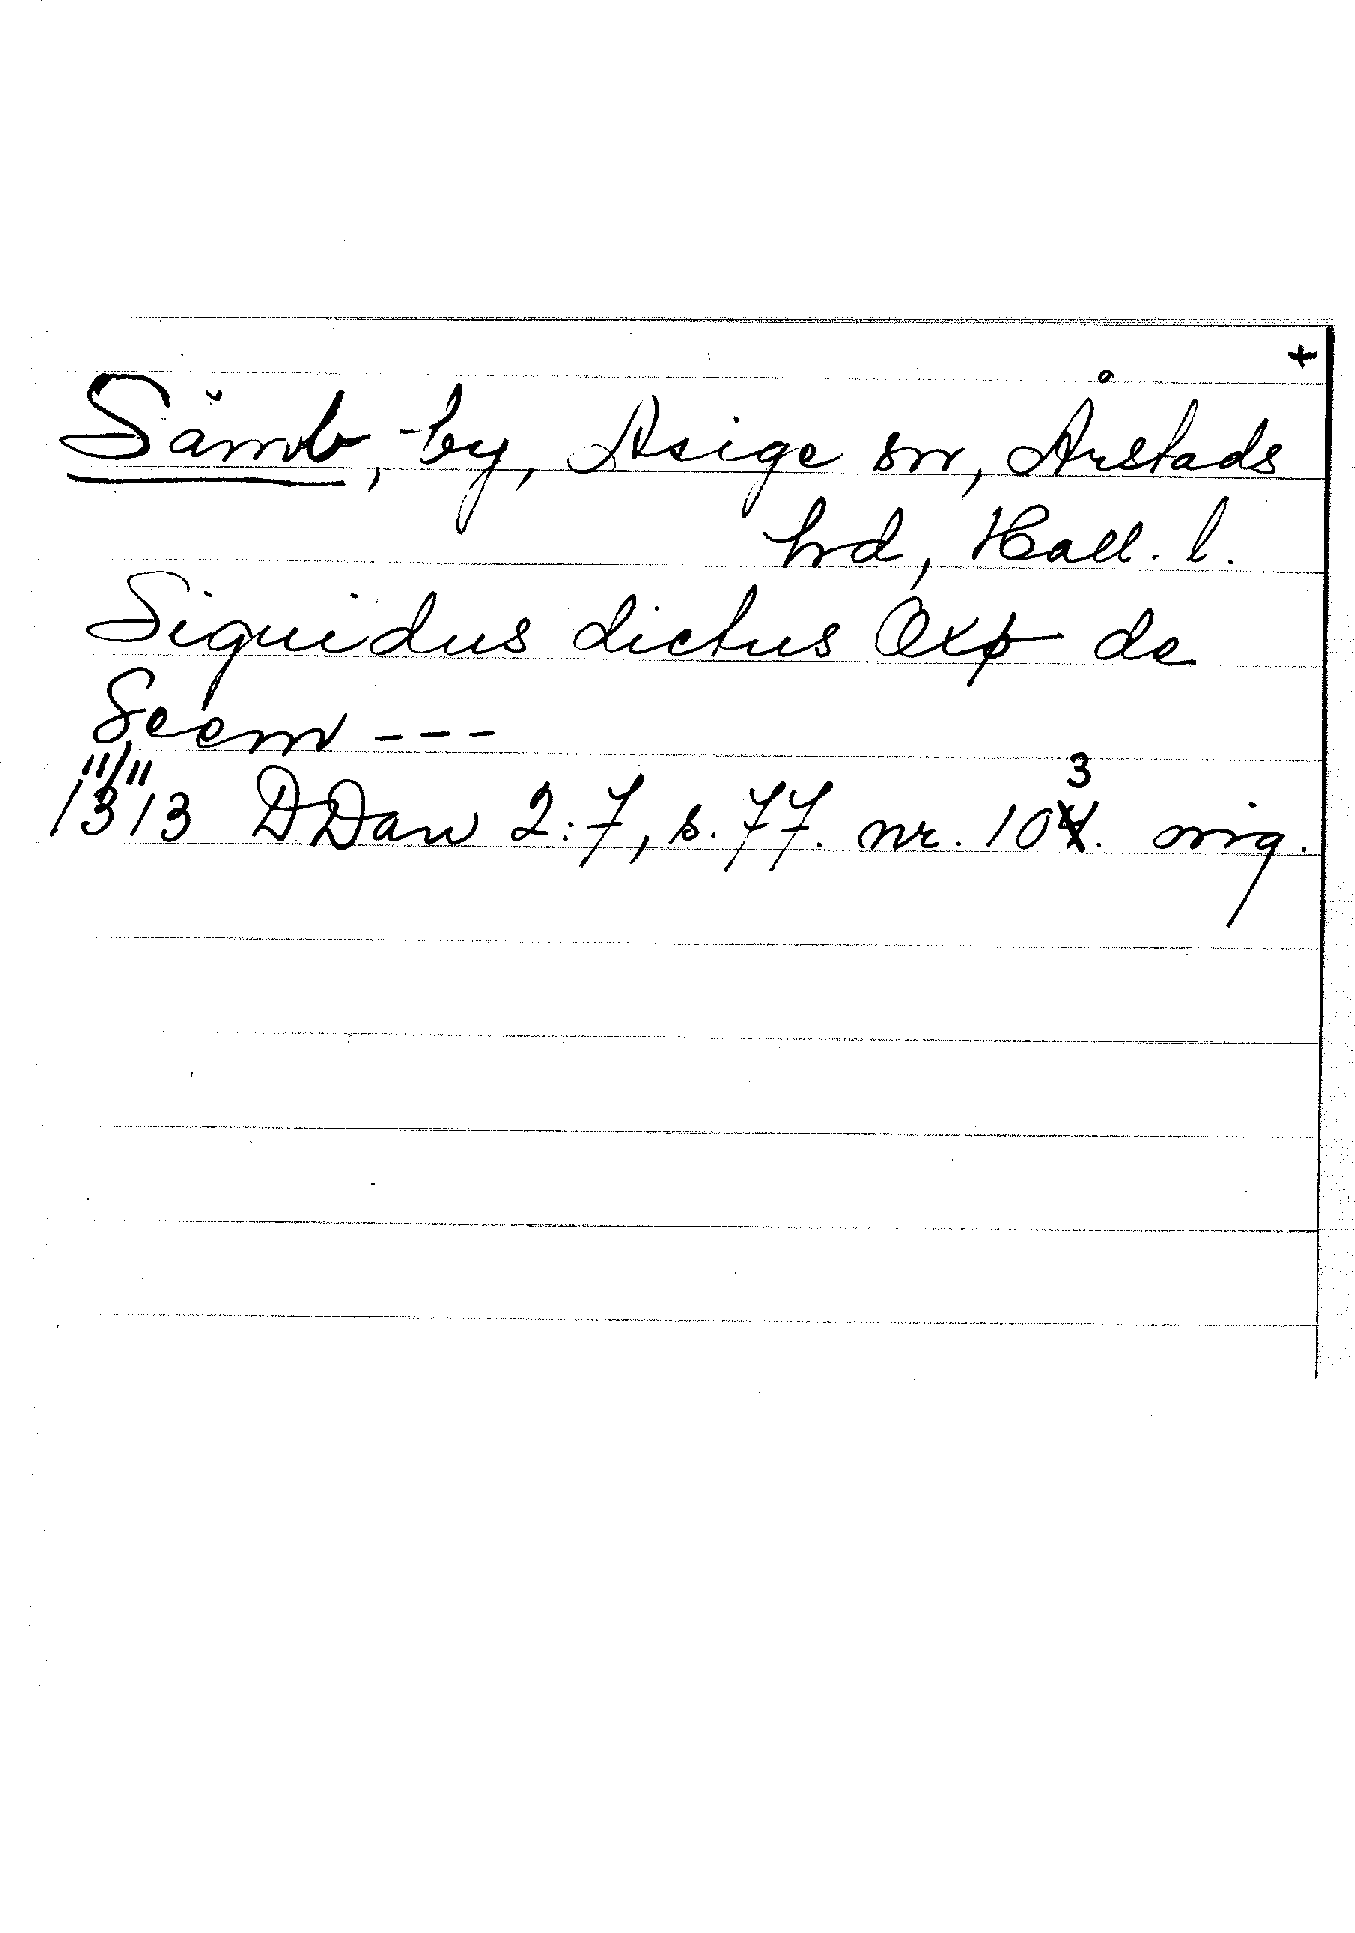 +
Sämb, -by, Asige sn, Årstads
hrd, Hall. l.
Siguidus dictus Oxø de
Seem ---
11/11
1313 DDan 2:7, s. 77. nr. 103. orig.